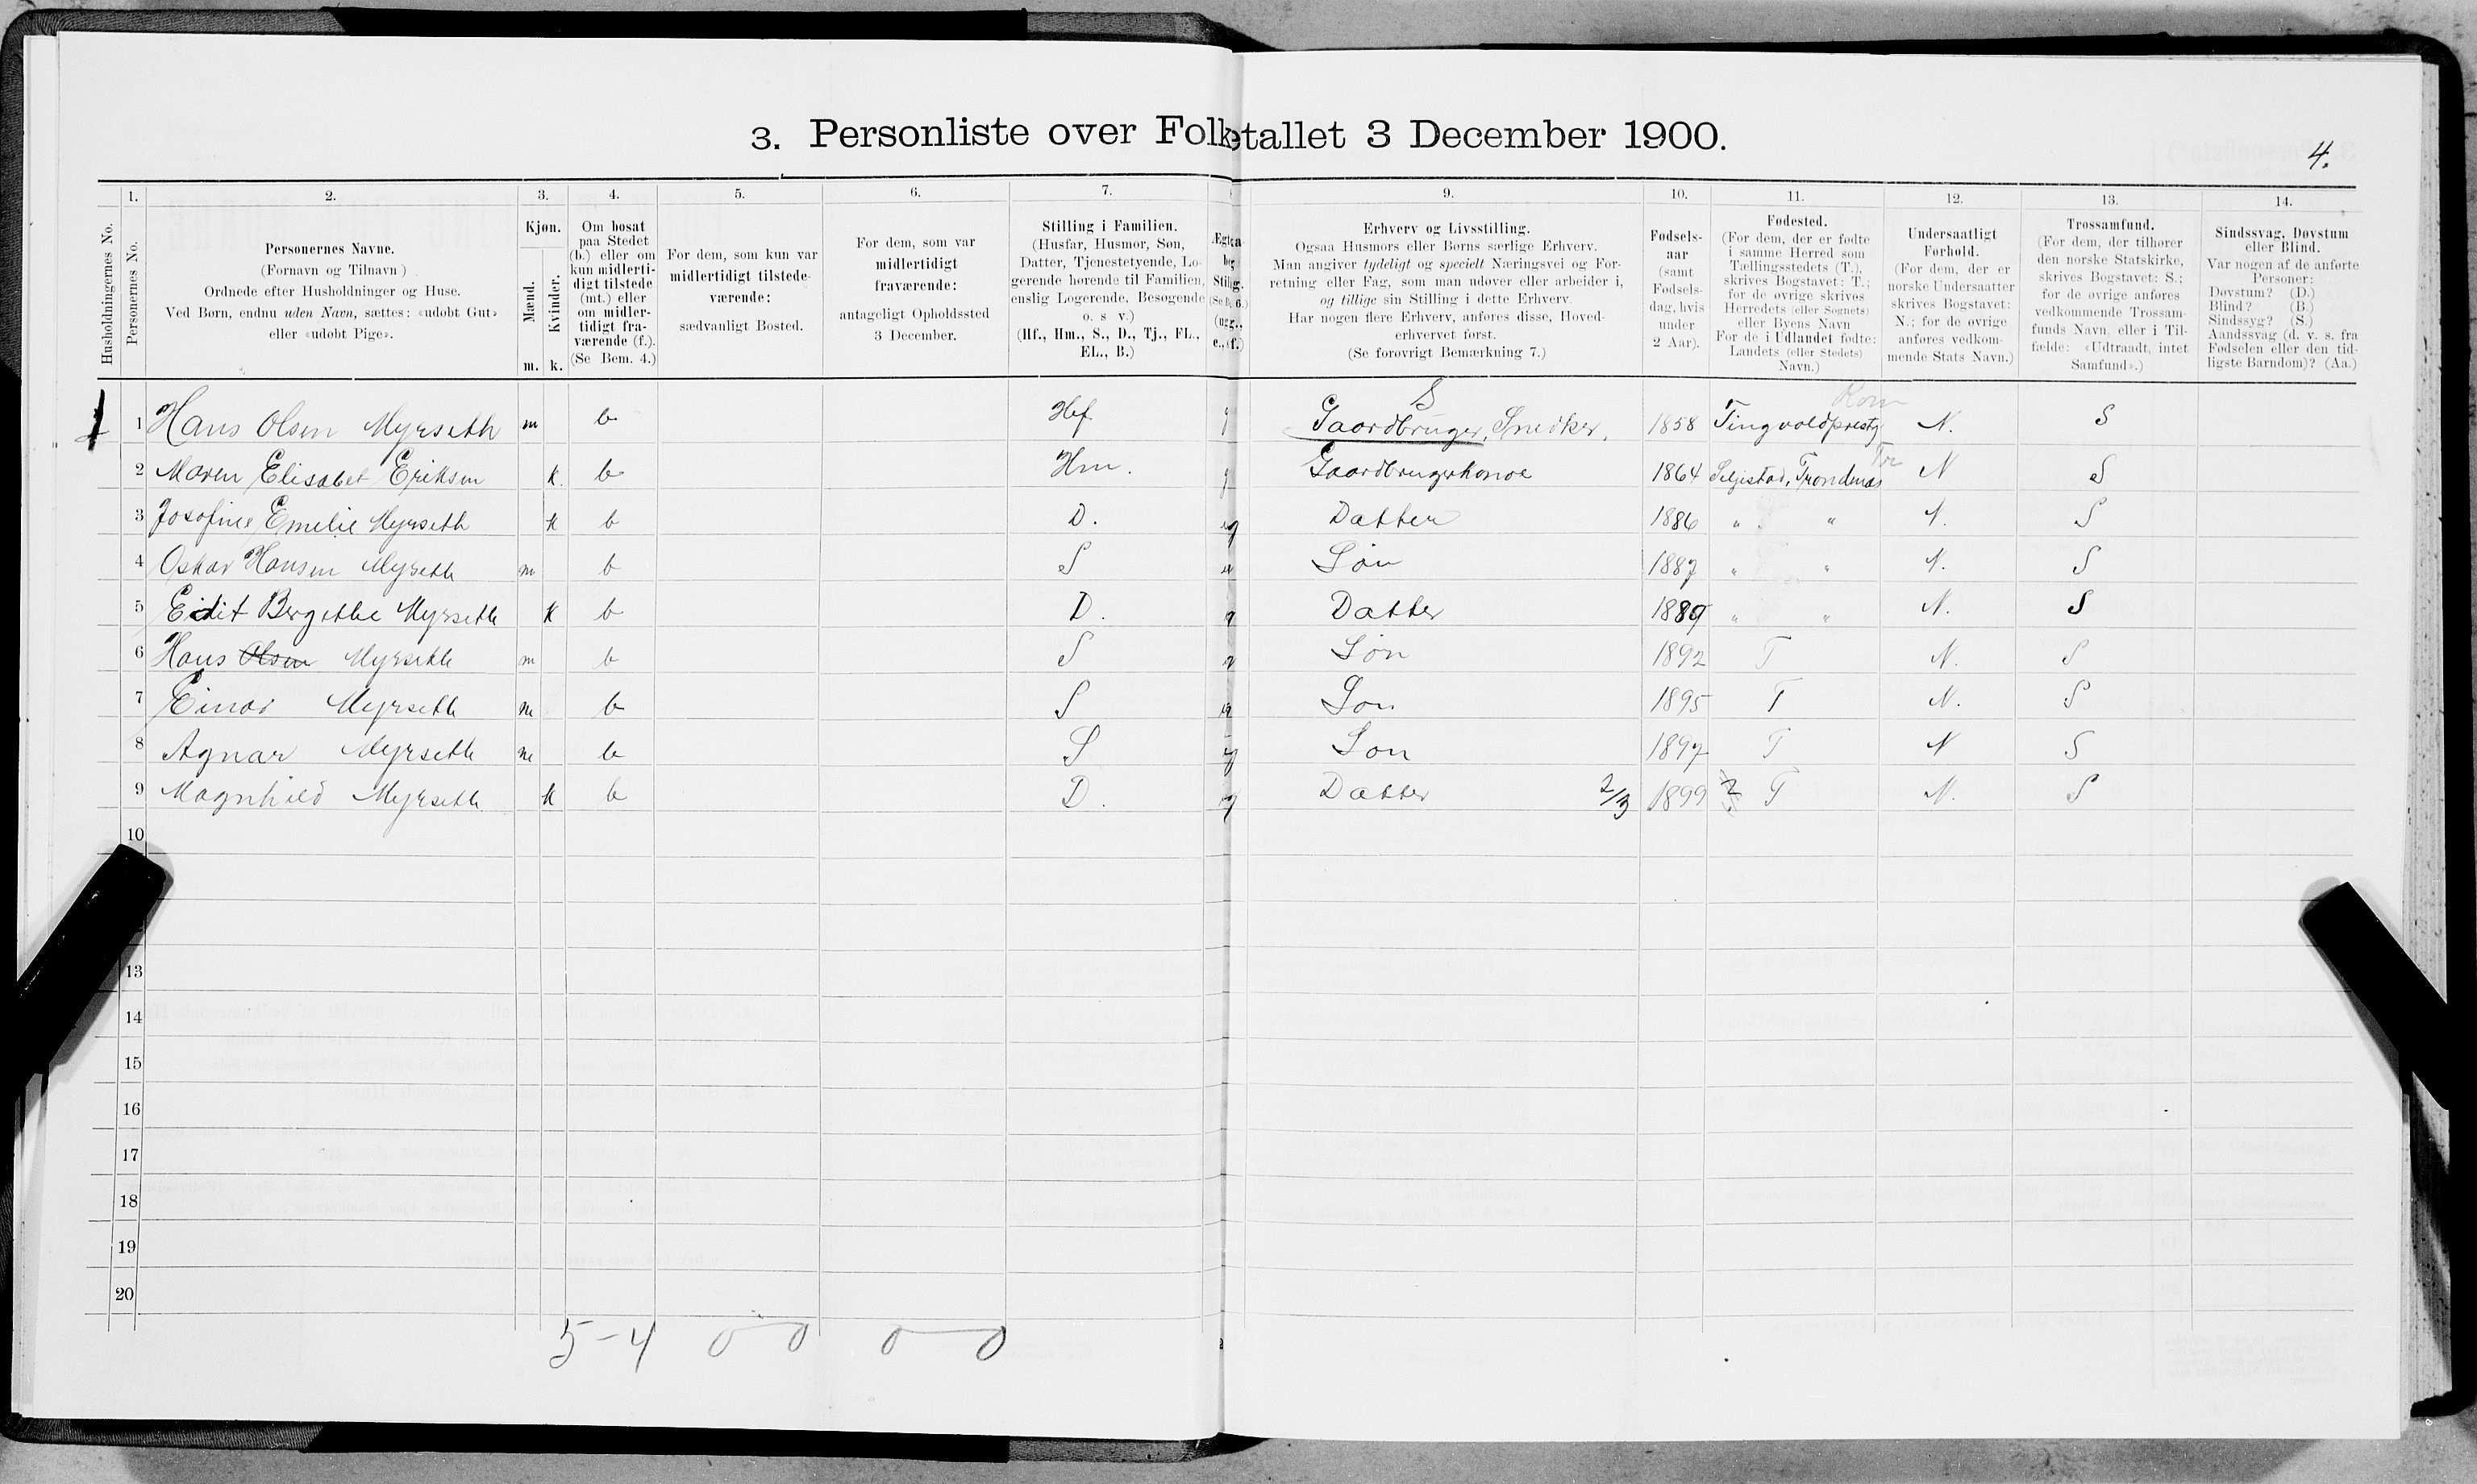 3. Personliste over Folketallet 3 December 1900.
4.
Husholdningernes No.
1.
Personernes No.
2.
Personernes Navne.
(Fornavn og Tilnavn)
Ordnede efter Husholdninger og Huse.
Ved Børn, endnu uden Navn, sættes: «udøbt Gut»
eller «udøbt Pige».
3.
Kjøn.
Mænd.
Kvinder.
m. k.
4.
Om bosat
paa Stedet
(b.) eller om
kun midlerti-
digt tilstede
(mt.) eller
om midler-
tidigt fra-
værende (f.).
(Se Bem. 4.)
5.
For dem, som kun var
midlertidigt tilstede-
værende:
sædvanligt Bosted.
6.
For dem, som var
midlertidigt
fraværende:
antageligt Opholdssted
3 December.
7.
Stilling i Familien.
(Husfar, Husmor, Søn,
Datter, Tjenestetyende, Lo-
gerende hørende til Familien,
enslig Logerende, Besøgende
o. s. v.)
(Hf., Hm., S., D., Tj., FL.,
EL., B.)
9.
Erhverv og Livsstilling.
Ogsaa Husmors eller Børns særlige Erhverv.
Man angiver tydeligt og specielt Næringsvei og For-
retning eller Fag, som man udøver eller arbeider i,
og tillige sin Stilling i dette Erhverv.
Har nogen flere Erhverv, anføres disse, Hoved-
erhvervet først.
(Se forøvrigt Bemærkning 7.)
10.
Fødsels-
aar
(samt
Fødsels-
dag, hvis
under
2 Aar).
11.
Fødested.
(For dem, der er fødte
i samme Herred som
Tællingsstedets (T.),
skrives Bogstavet: T.;
for de øvrige skrives
Herredets (eller Sognets)
eller Byens Navn
For de i Udlandet fødte:
Landets (eller Stedets)
Navn.)
12.
Undersaatligt
Forhold.
(For dem, der er
norske Undersaatter
skrives Bogstavet:
N.; for de øvrige
anføres vedkom-
mende Stats Navn.)
13.
Trossamfund.
(For dem, der tilhører
den norske Statskirke,
skrives Bogstavet: S.;
for de øvrige anføres
vedkommende Trossam-
funds Navn, eller i Til-
fælde: «Udtraadt, intet
Samfund».)
14.
Sindssvag, Døvstum
eller Blind.
Var nogen af de anførte
Personer:
Døvstum? (D.)
Blind? (B.)
Sindssyg? (S.)
Aandssvag (d. v. s. fra
Fødselen eller den tid-
ligste Barndom)? (Aa.)
S Rom
1 Hans Olsen Myrseth m b Hf. g Gaardbruger, Snedker, 1858 Tingvoldprestg N. S
2 Maren Elisabet Eriksen k. b Hm. g Gaardbrugerkonoe 1864 Seljestad, Trondenæs N S
3 Josefine Emelie Myrseth k b D. ug Datter 1886 " " N. S
4 Oskar Hansen Myrseth m b S Søn 1887 " " N. S
5 Edit Bergithe Myrseth k b D. Datter 1889 " " N. S
6 Hans Olsen Myrseth m b S Søn 1892 T N. S
7 Einar Myrseth m b S Søn 1895 T N. S
8 Agnar Myrseth m b S ug Søn 1897 T N S
9 Magnhild Myrseth k b D. ug Datter 2/3 1899 T N. S
10
13
14
15
16
17
18
19
20
5-4 0 0 0 0